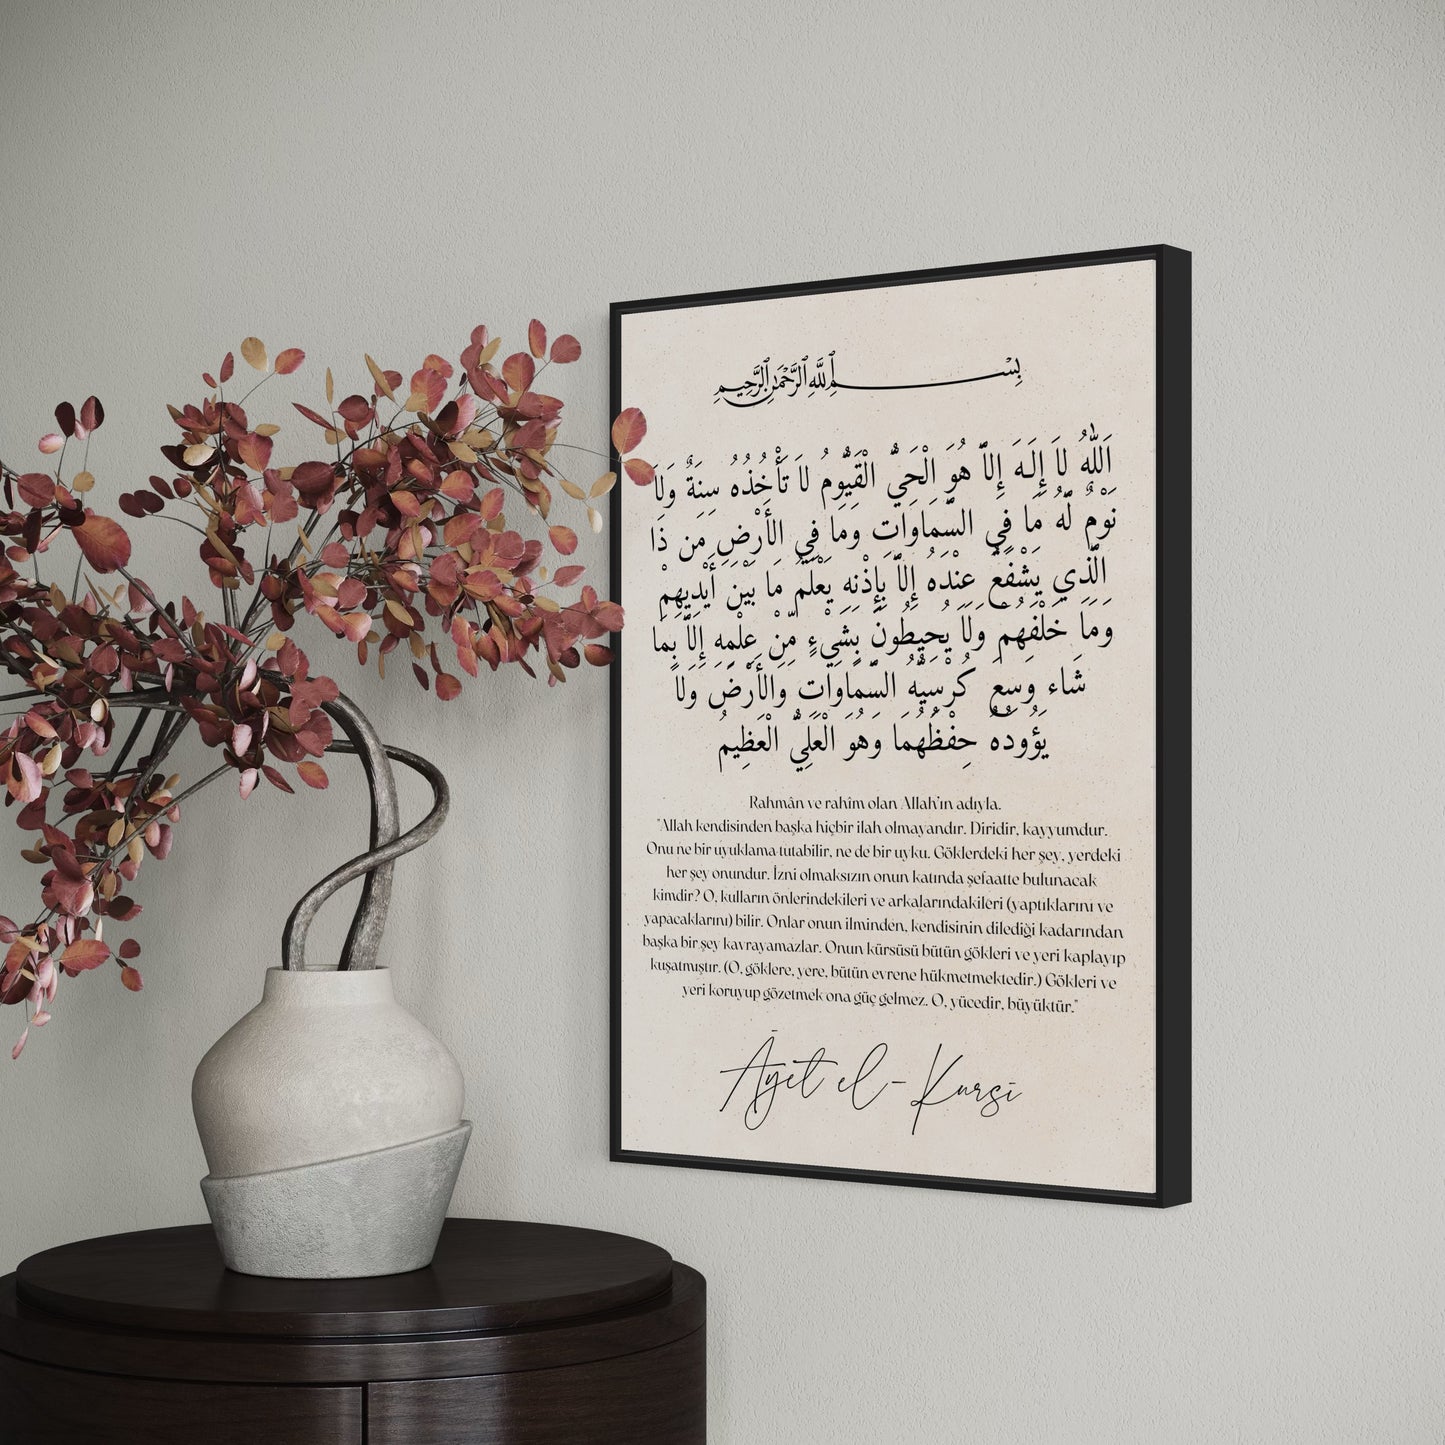 بِسْمِ ٱللَّهِ ٱلرَّحْمَٰنِ ٱلرَّحِيمِ
اَللهُ لاَ إِلَهَ إِلاَّ هُوَ الْحَيُّ الْقَيُّومُ لاَ تَأْخُذُهُ سِنَةٌ وَلاَ
نَوْمٌ لَّهُ مَا فِي السَّمَاوَاتِ وَمَا فِي الأَرْضِ مَن ذَا
الَّذِي يَشْفَعُ عِنْدَهُ إِلاَّ بِإِذْنِهِ يَعْلَمُ مَا بَيْنَ أَيْدِيهِمْ
وَمَا خَلْفَهُمْ وَلاَ يُحِيطُونَ بِشَيْءٍ مِّنْ عِلْمِهِ إِلاَّ بِمَا
شَاء وَسِعَ كُرْسِيُّهُ السَّمَاوَاتِ وَالأَرْضَ وَلاَ
يَؤُودُهُ حِفْظُهُمَا وَهُوَ الْعَلِيُّ الْعَظِيمُ
Rahmân ve rahîm olan Allah'ın adıyla.
"Allah kendisinden başka hiçbir ilah olmayandır. Diridir, kayyumdur.
Onu ne bir uyuklama tutabilir, ne de bir uyku. Göklerdeki her şey, yerdeki
her şey onundur. İzni olmaksızın onun katında şefaatte bulunacak
kimdir? O, kulların önlerindekileri ve arkalarındakileri (yaptıklarını ve
yapacaklarını) bilir. Onlar onun ilminden, kendisinin dilediği kadarından
başka bir şey kavrayamazlar. Onun kürsüsü bütün gökleri ve yeri kaplayıp
kuşatmıştır. (O, göklere, yere, bütün evrene hükmetmektedir.) Gökleri ve
yeri koruyup gözetmek ona güç gelmez. O, yücedir, büyüktür."
Âyet el-Kursî